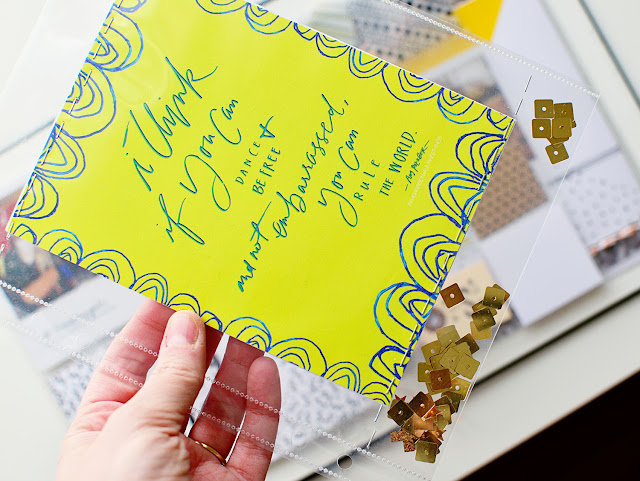 i think
if you can
DANCE +
BE FREE
and not
embarrassed,
you can
RULE
THE WORLD.